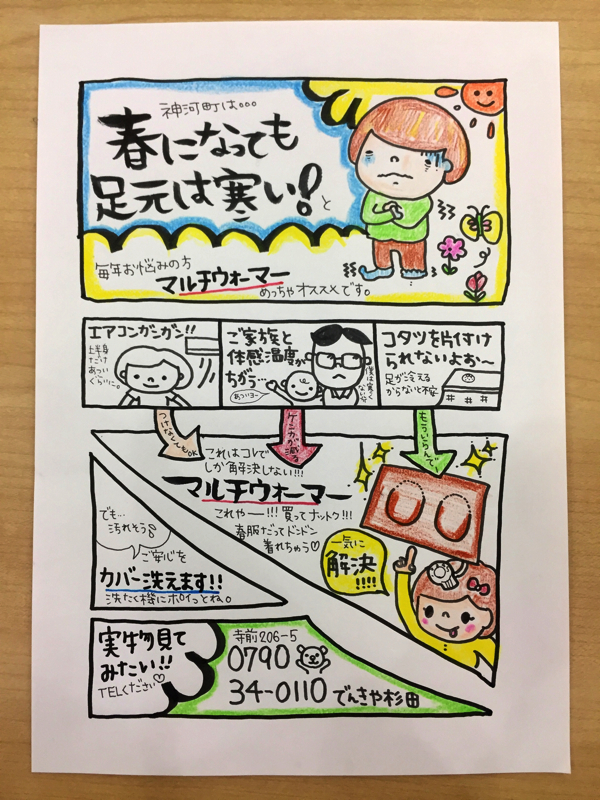 神河町は。。。
春になっても
足元は寒い!と
毎年お悩みの方
マルチウォーマー
めっちゃオススメです。
エアコンガンガン!!
上半身
だけ
あつい
ぐらいに。
ご家族と
体感温度が
ちがう…
あつい~
僕は寒く
ない分
コタツを片付け
られないよぉ~
足が冷える
からないと不安
つけなくてもOK
ケンカが減る
もういらんで
これはコレで
しか解決しない!!!
マルチウォーマー
これやー!!!買ってナットク!!!
春服だってドンドン
着れちゃう♡
一気に
解決
!!!!
でも…
汚れそう
ご安心を
カバー洗えます!!
洗たく機にポイっとね。
実物見て
みたい!!
TELください♡
寺前206-5
0790
34-0110 でんきや杉田